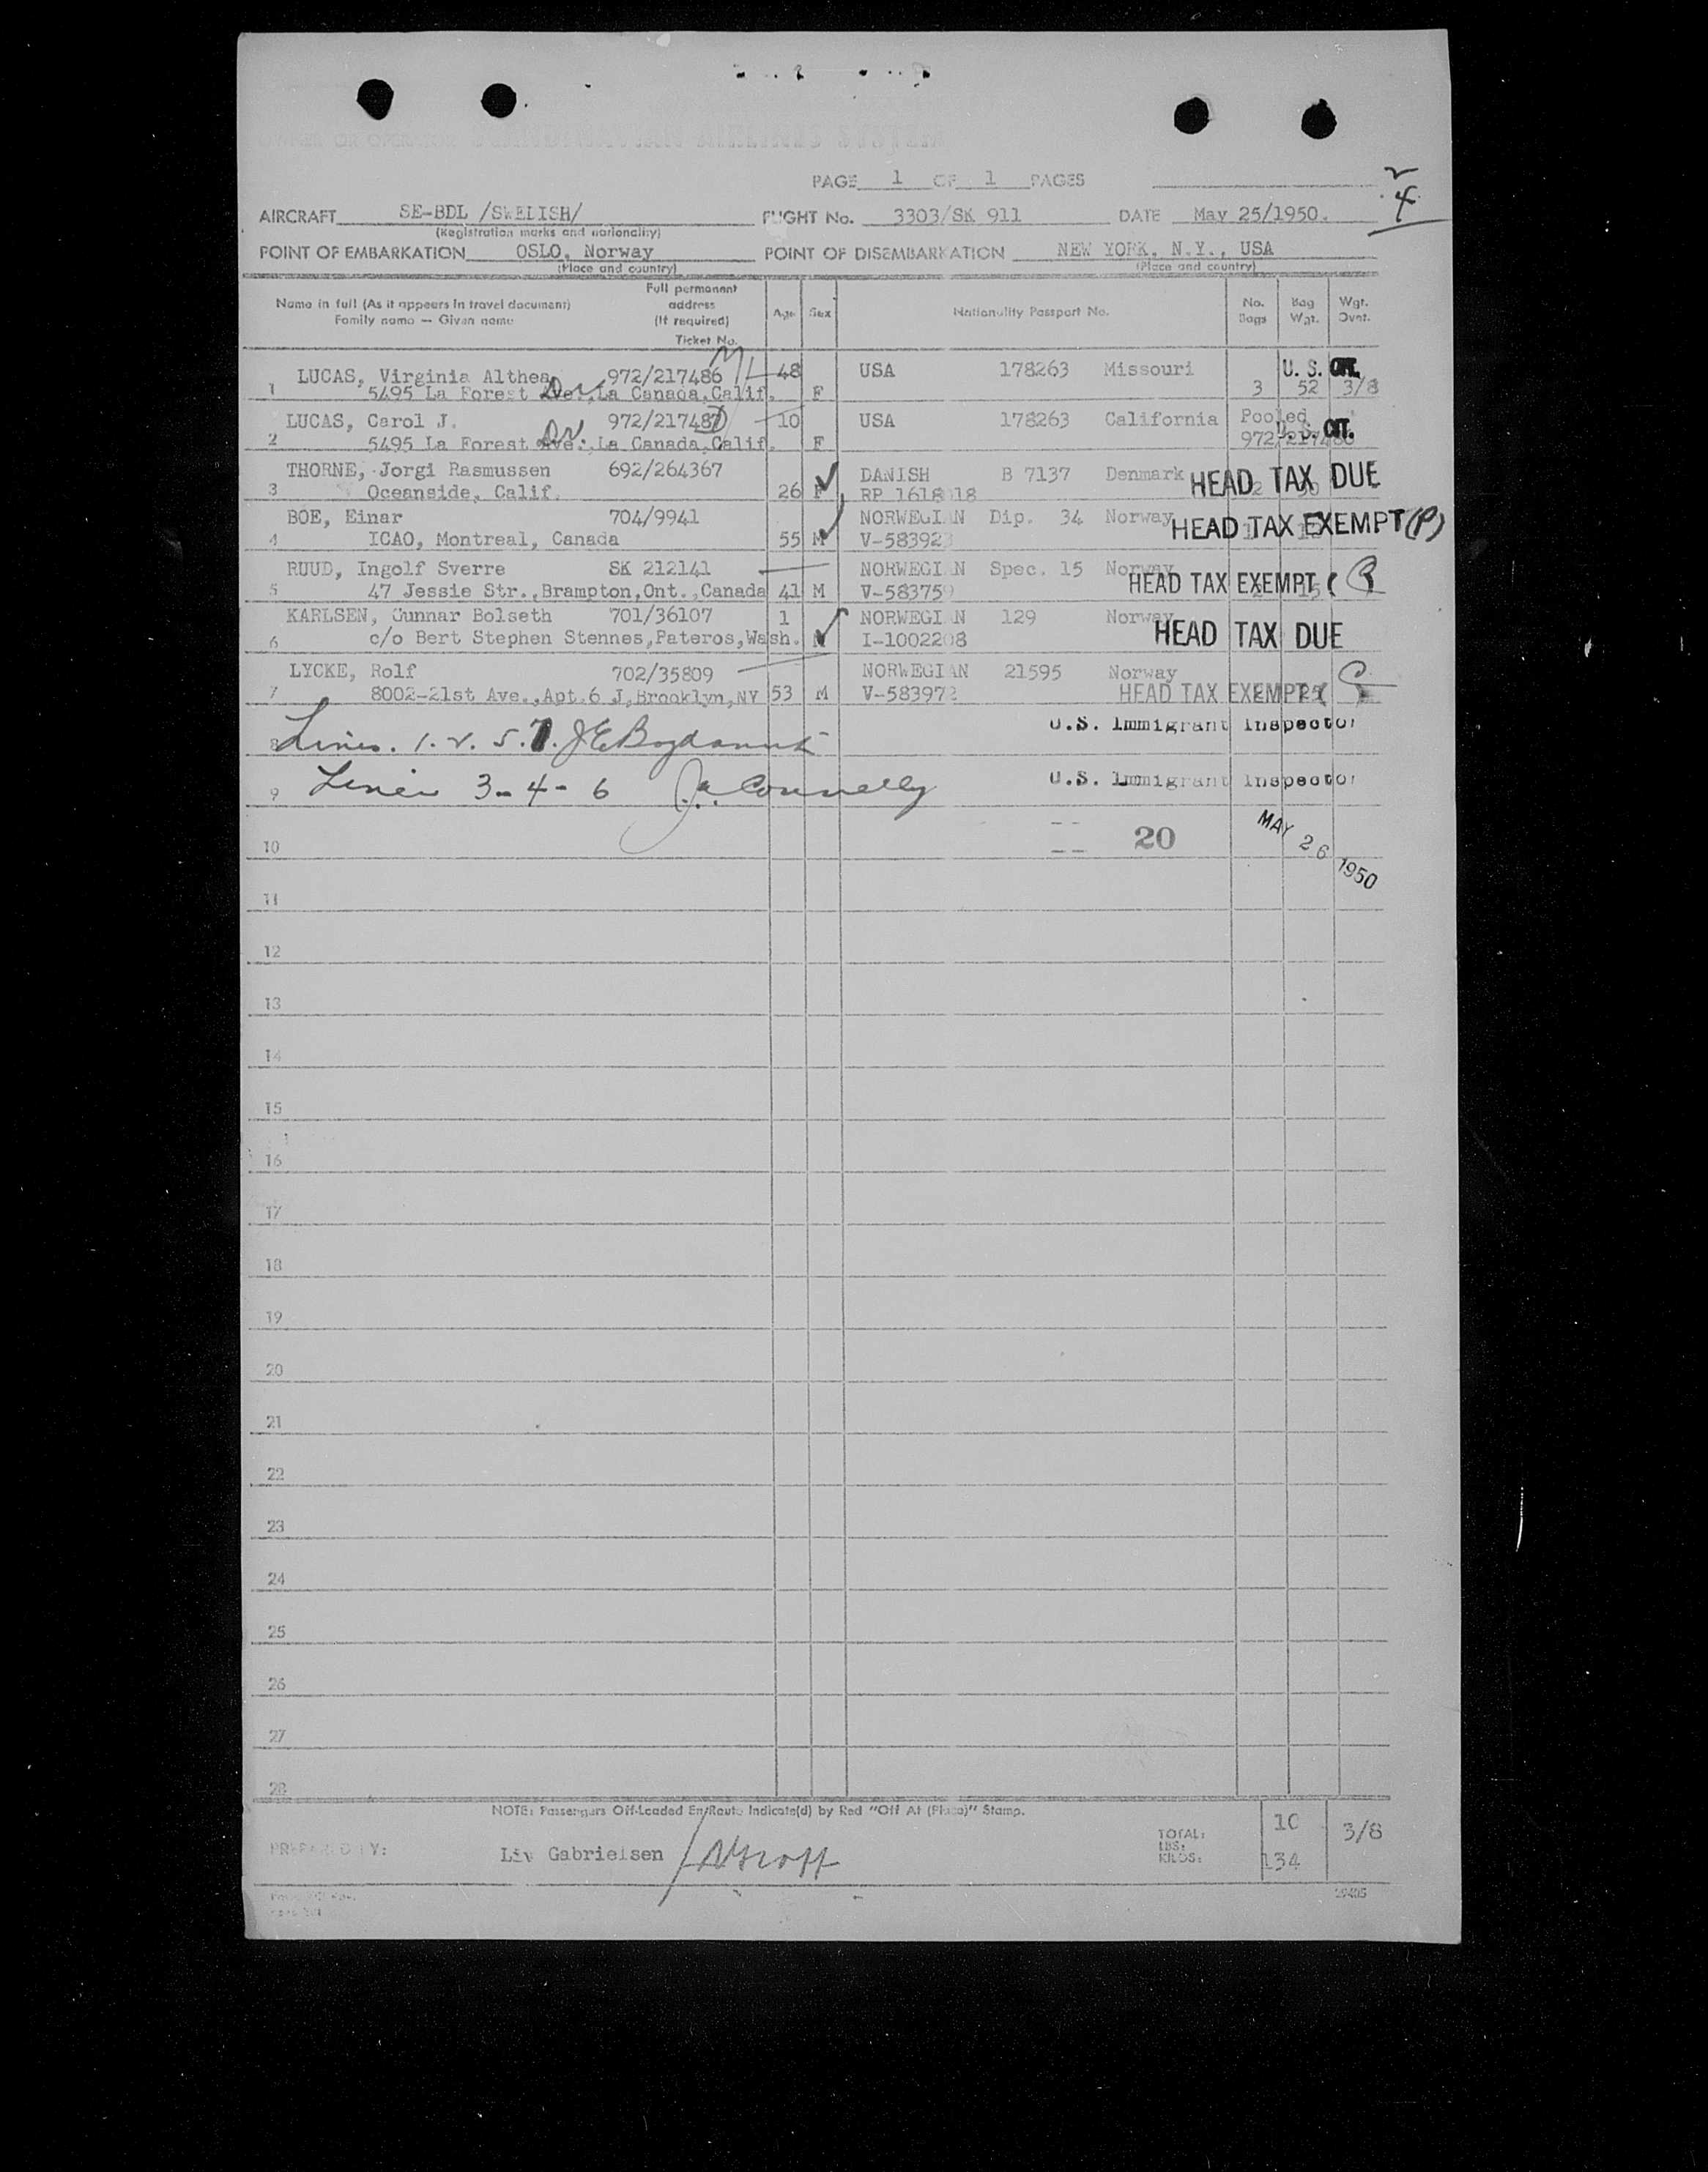 OWNER OR OPERATOR SCANDINAVIAN AIRLINES SYSTEM
PAGE 1 OF 1 PAGES
4
AIRCRAFT SE-BDL /SWELISH/ FLIGHT No. 3303/SK 911 DATE May 25/1950.
(Registration marks and nationality)
POINT OF EMBARKATION OSLO, Norway POINT OF DISEMBARKATION NEW YORK, N.Y., USA
(Place and country) (Place and country)
Name in full (As it appears in travel document) Family name — Given name Full permanent address (If required) Ticket No. Age Sex Nationality Passport No. No. Bags Bag Wgt. Wgt. Ovnt.
LUCAS, Virginia Althea 972/217486 48 USA 178263 Missouri U. S. CIT.
1 5495 La Forest Ave., La Canada, Calif. Dr. F 3 52 3/8
LUCAS, Carol J. 972/217487 10 USA 178263 California Pooled
2 5495 La Forest Ave., La Canada, Calif. Dr. F 972/217486 U. S. CIT.
THORNE, Jorgi Rasmussen 692/264367 DANISH B 7137 Denmark HEAD TAX DUE
3 Oceanside, Calif. 26 F RP 1618018
BOE, Einar 704/9941 NORWEGIAN Dip. 34 Norway HEAD TAX EXEMPT (P)
4 ICAO, Montreal, Canada 55 M V-583923
RUUD, Ingolf Sverre SK 212141 NORWEGIAN Spec. 15 Norway
5 47 Jessie Str., Brampton, Ont., Canada 41 M V-583759 HEAD TAX EXEMPT (
KARLSEN, Gunnar Bolseth 701/36107 1 NORWEGIAN 129 Norway
6 c/o Bert Stephen Stennes, Pateros, Wash. M I-1002208 HEAD TAX DUE
LYCKE, Rolf 702/35809 NORWEGIAN 21595 Norway
7 8002-21st Ave., Apt. 6 J, Brooklyn, NY 53 M V-583972 HEAD TAX EXEMPT (
8 Lines. 1. 2. 5. 7. U.S. Immigrant Inspector
9 Lines 3-4-6 J. Connelly U.S. Immigrant Inspector
10 20 MAY 26 1950
11
12
13
14
15
16
17
18
19
20
21
22
23
24
25
26
27
28
NOTE: Passengers Off-Loaded En/Route Indicate(d) by Red "Off At (Place)" Stamp.
PREPARED BY: Liv Gabrielsen TOTAL: 10 3/8
LBS:
KILOS: 134
29405